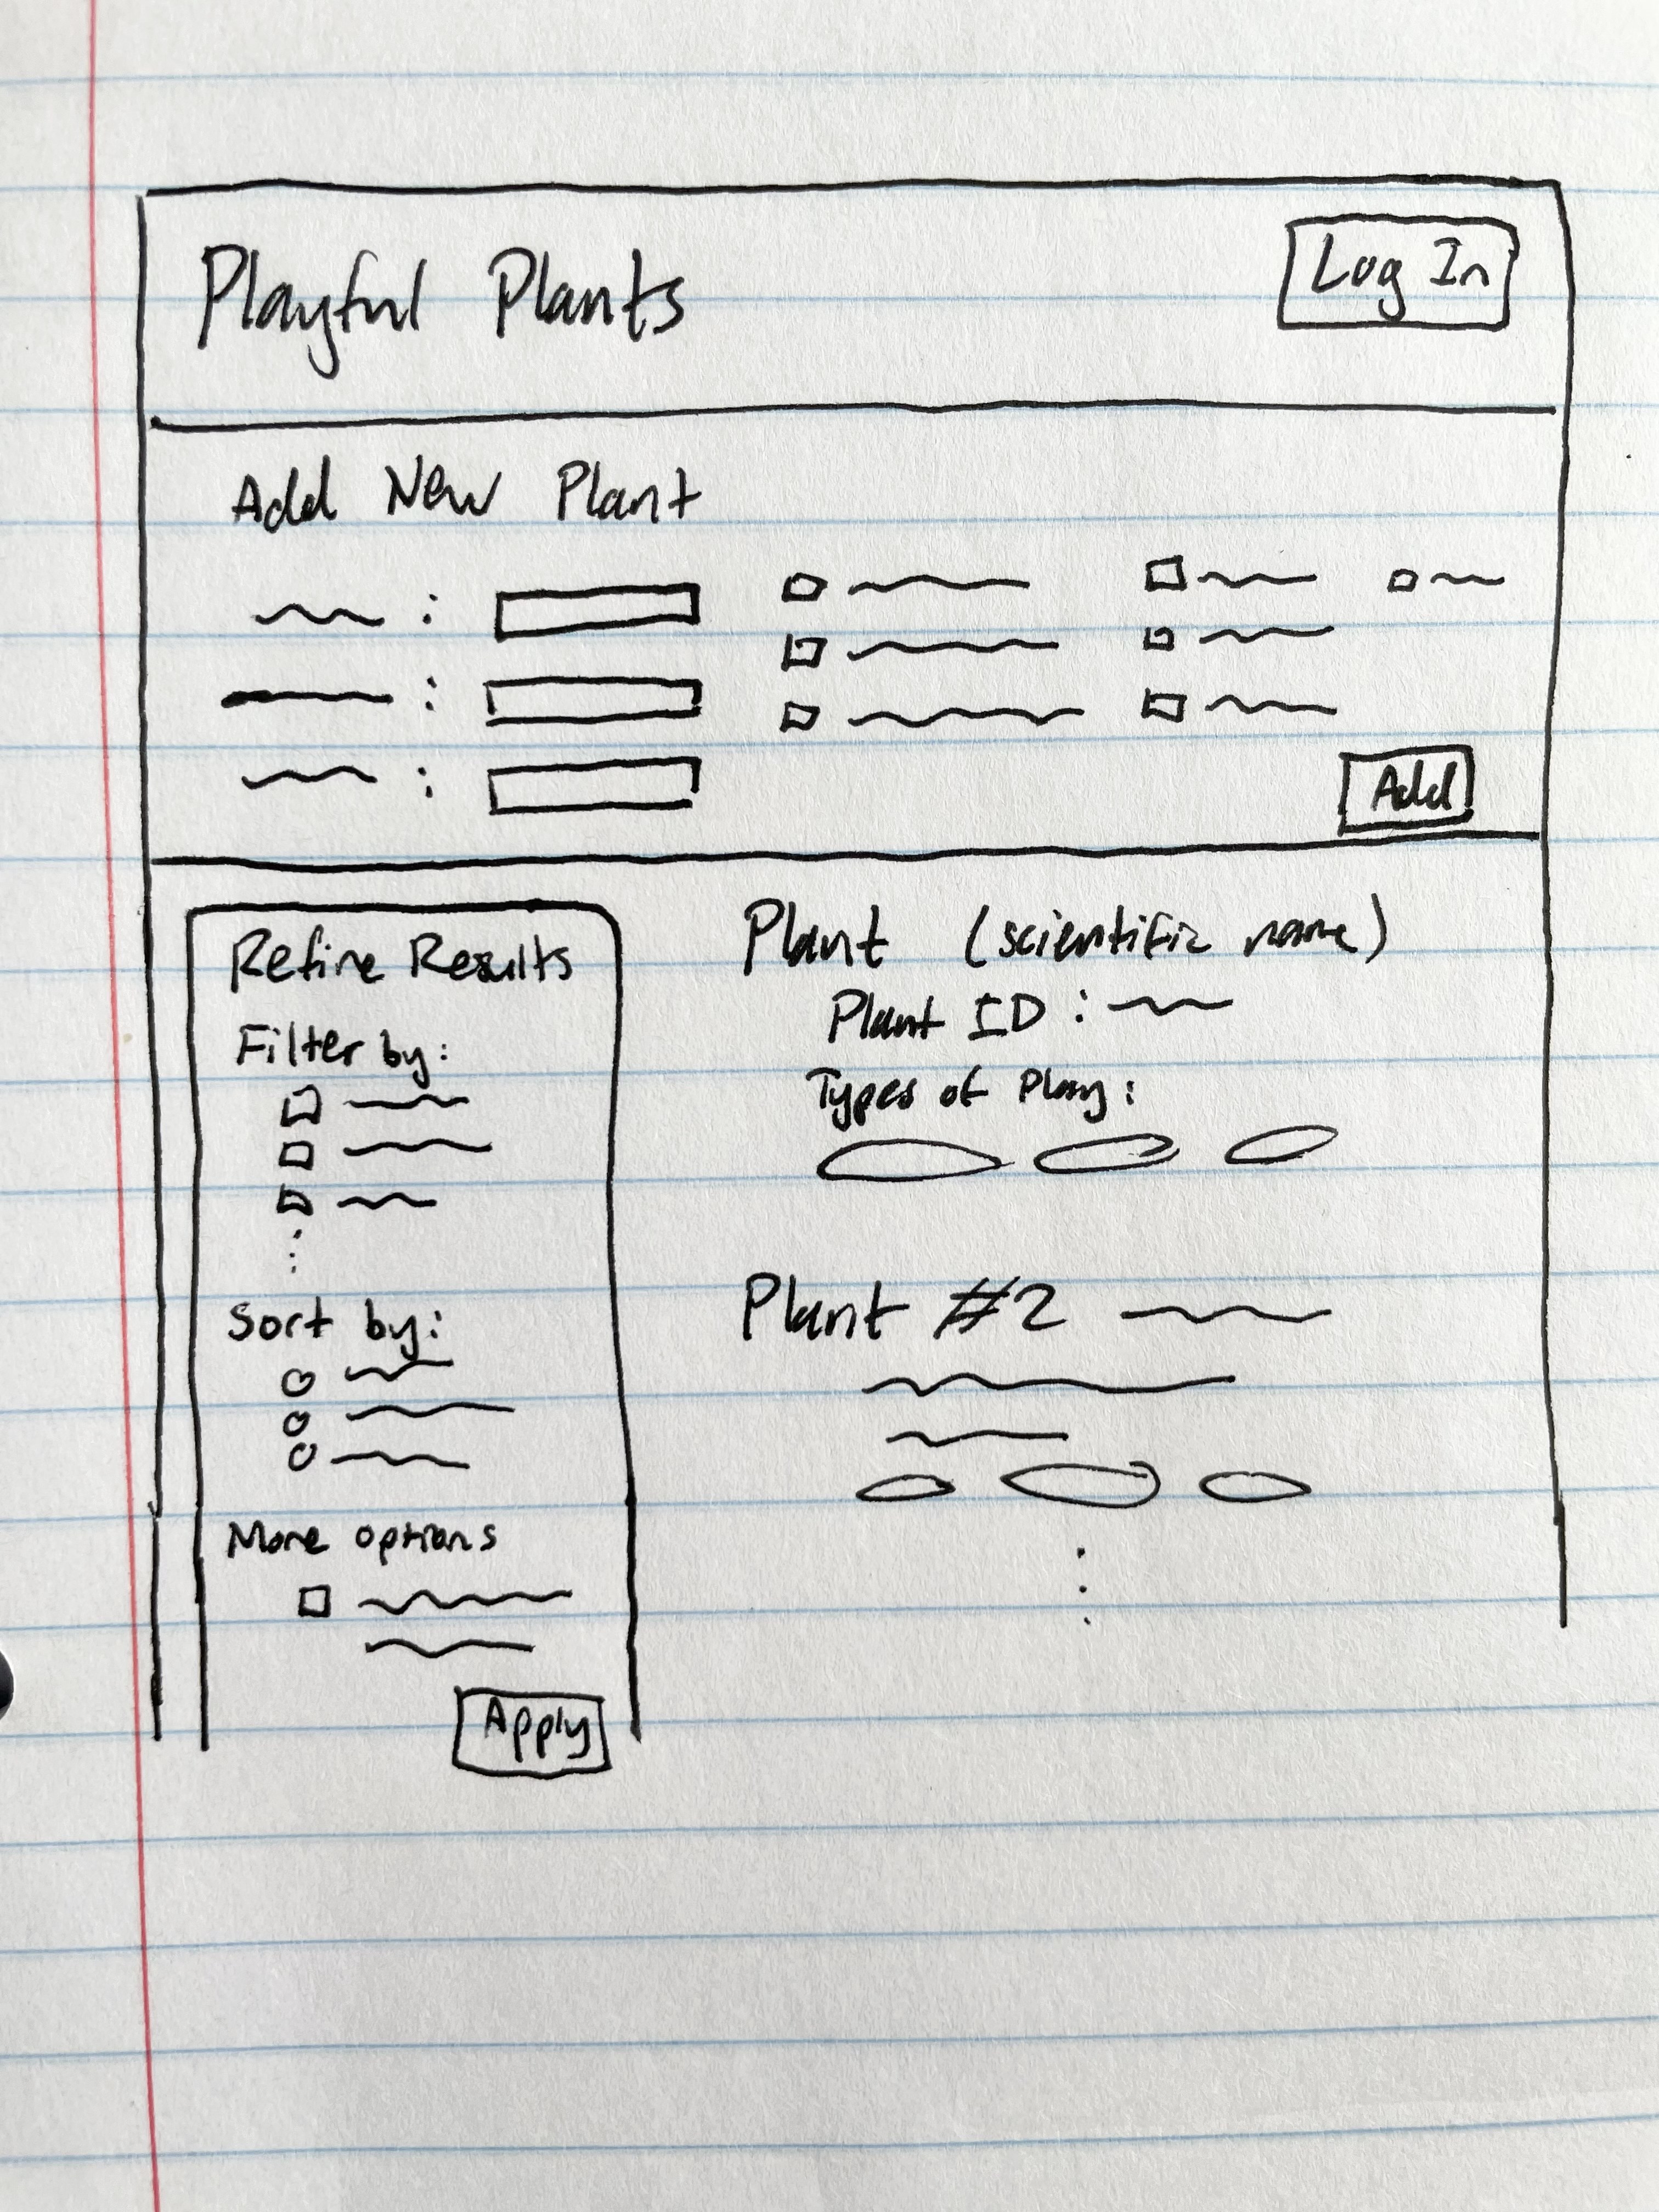 Playful Plants
Log In
Add New Plant
:
:
:
Add
Refine Results
Filter by:
Sort by:
More options
Apply
Plant (scientific name)
Plant ID :
Types of Play:
Plant #2